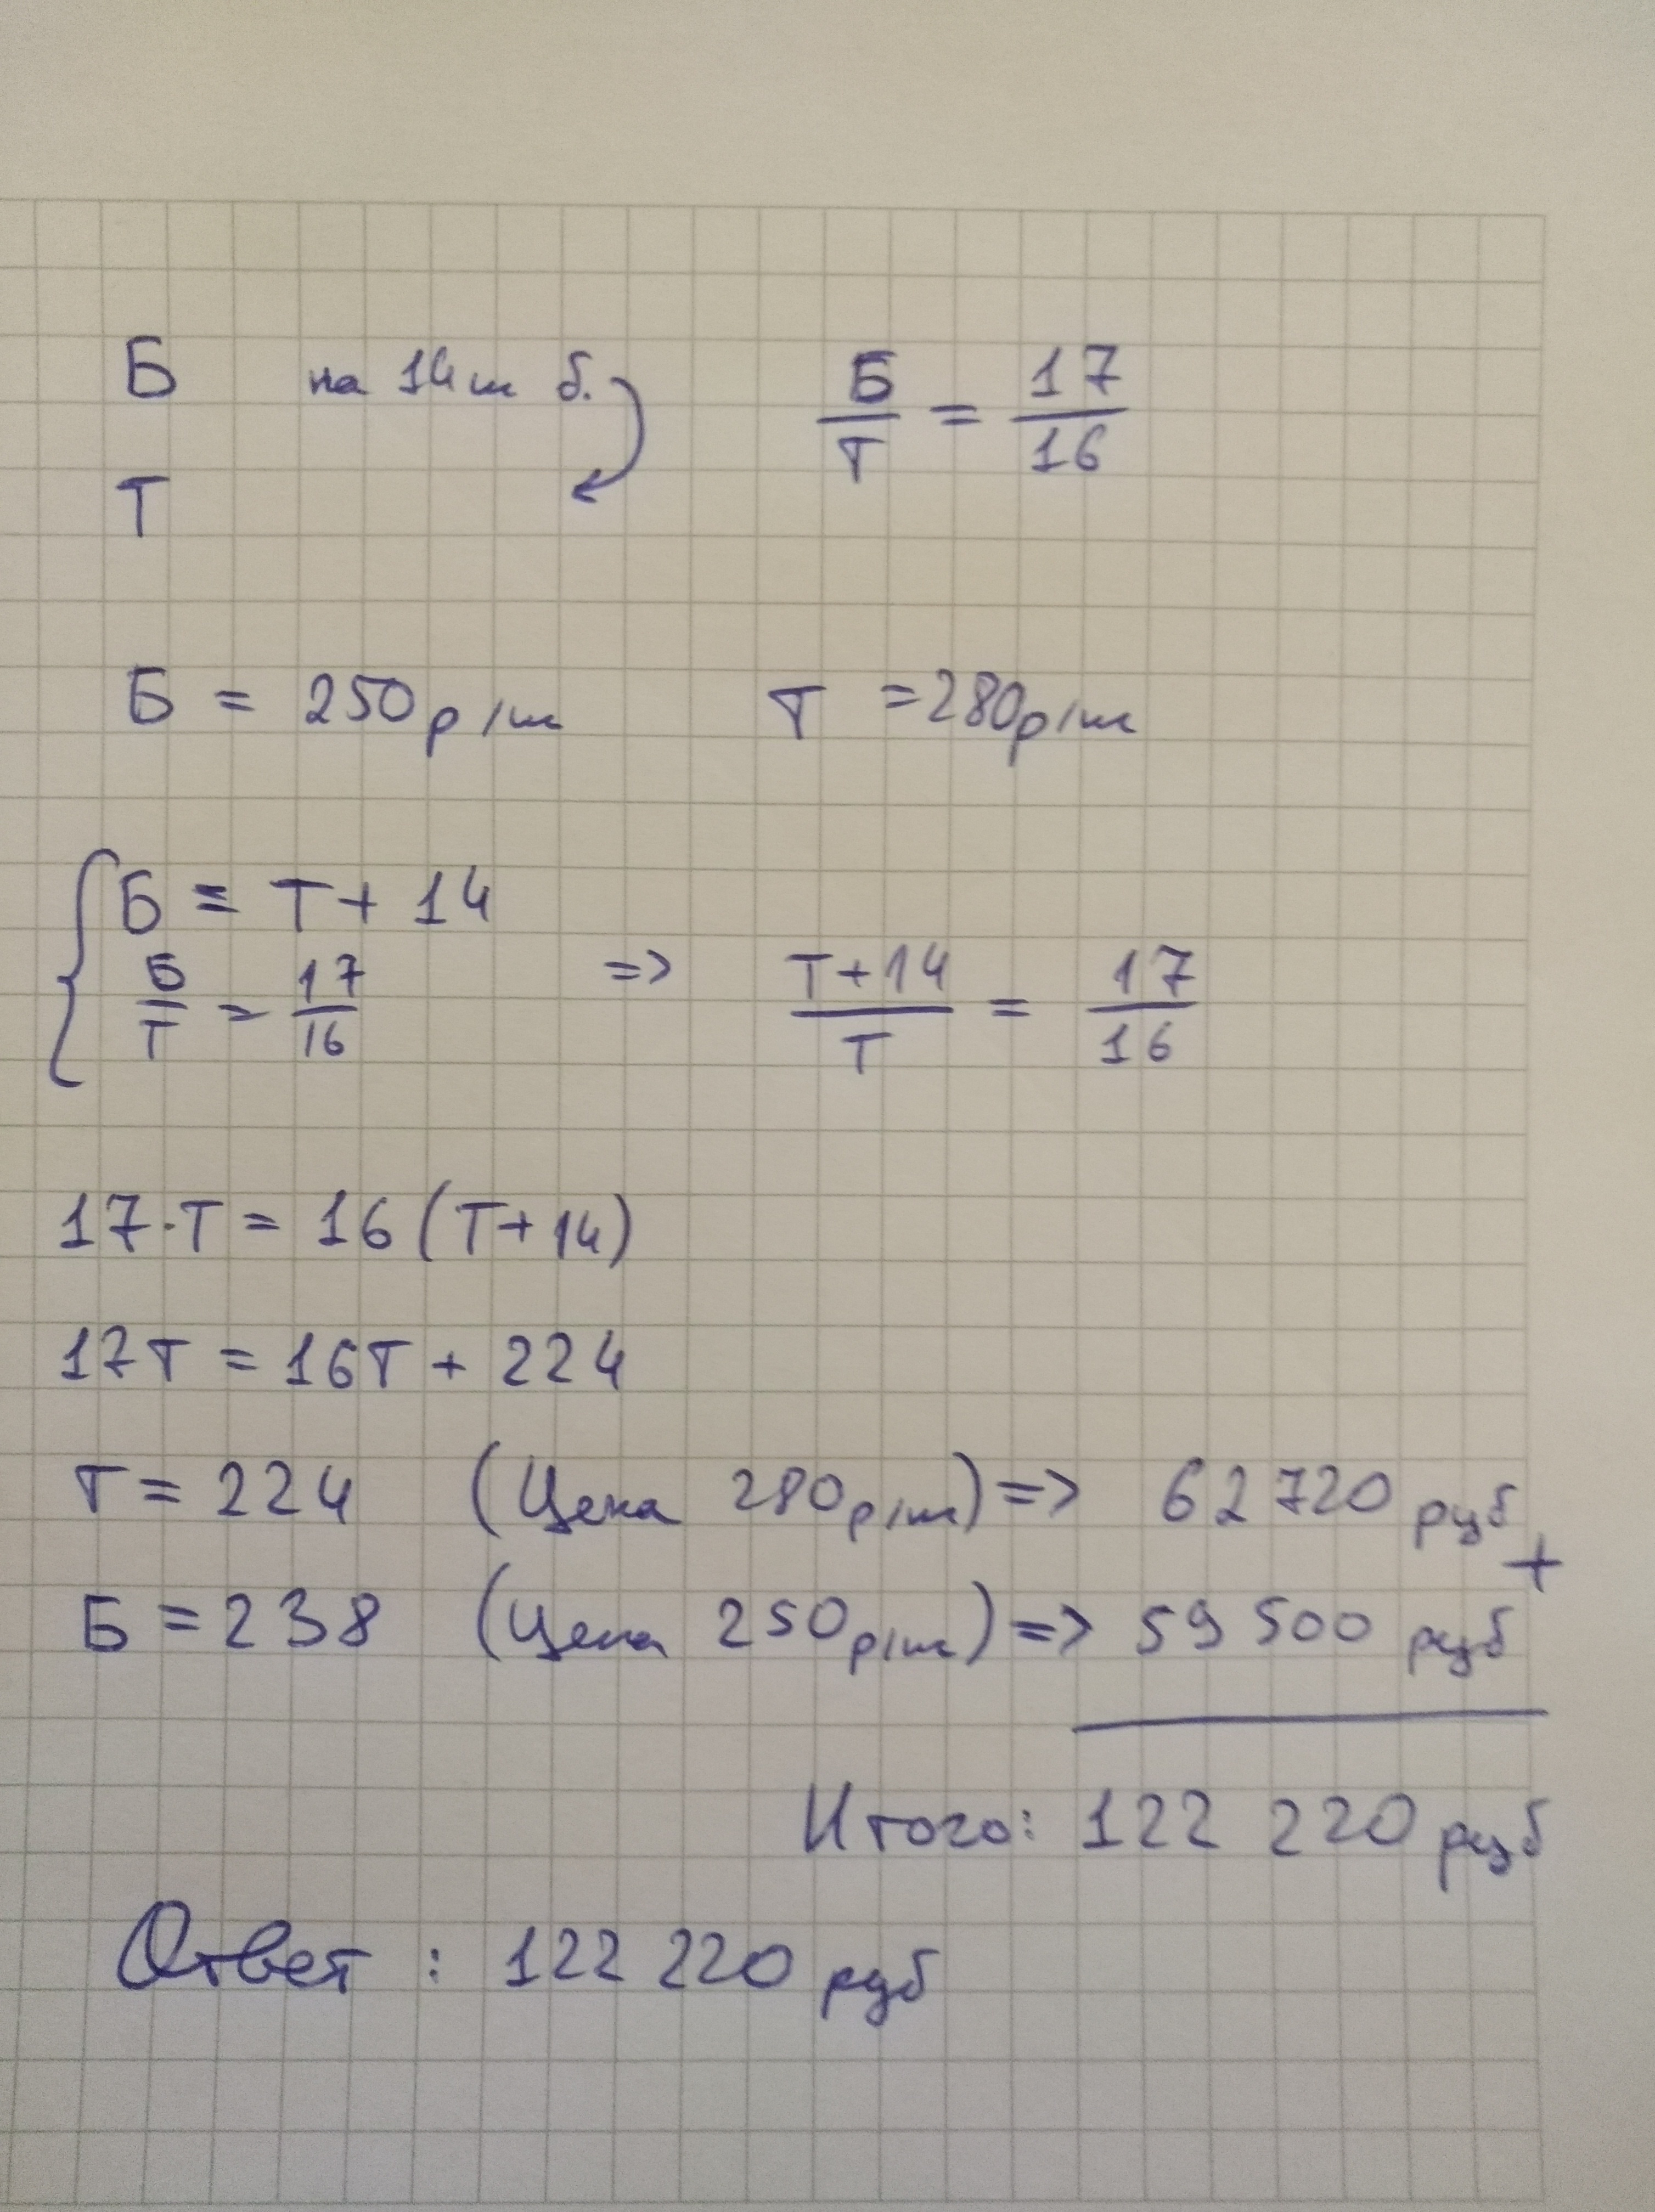 Б на 14ш б. Б/Т = 17/16
Т
Б = 250р/ш Т = 280р/ш
{ Б = Т + 14
Б/Т = 17/16 => (Т+14)/Т = 17/16
17·Т = 16(Т+14)
17Т = 16Т + 224
Т = 224 (Цена 280р/ш) => 62 720 руб +
Б = 238 (Цена 250р/ш) => 59 500 руб
Итого: 122 220 руб
Ответ : 122 220 руб